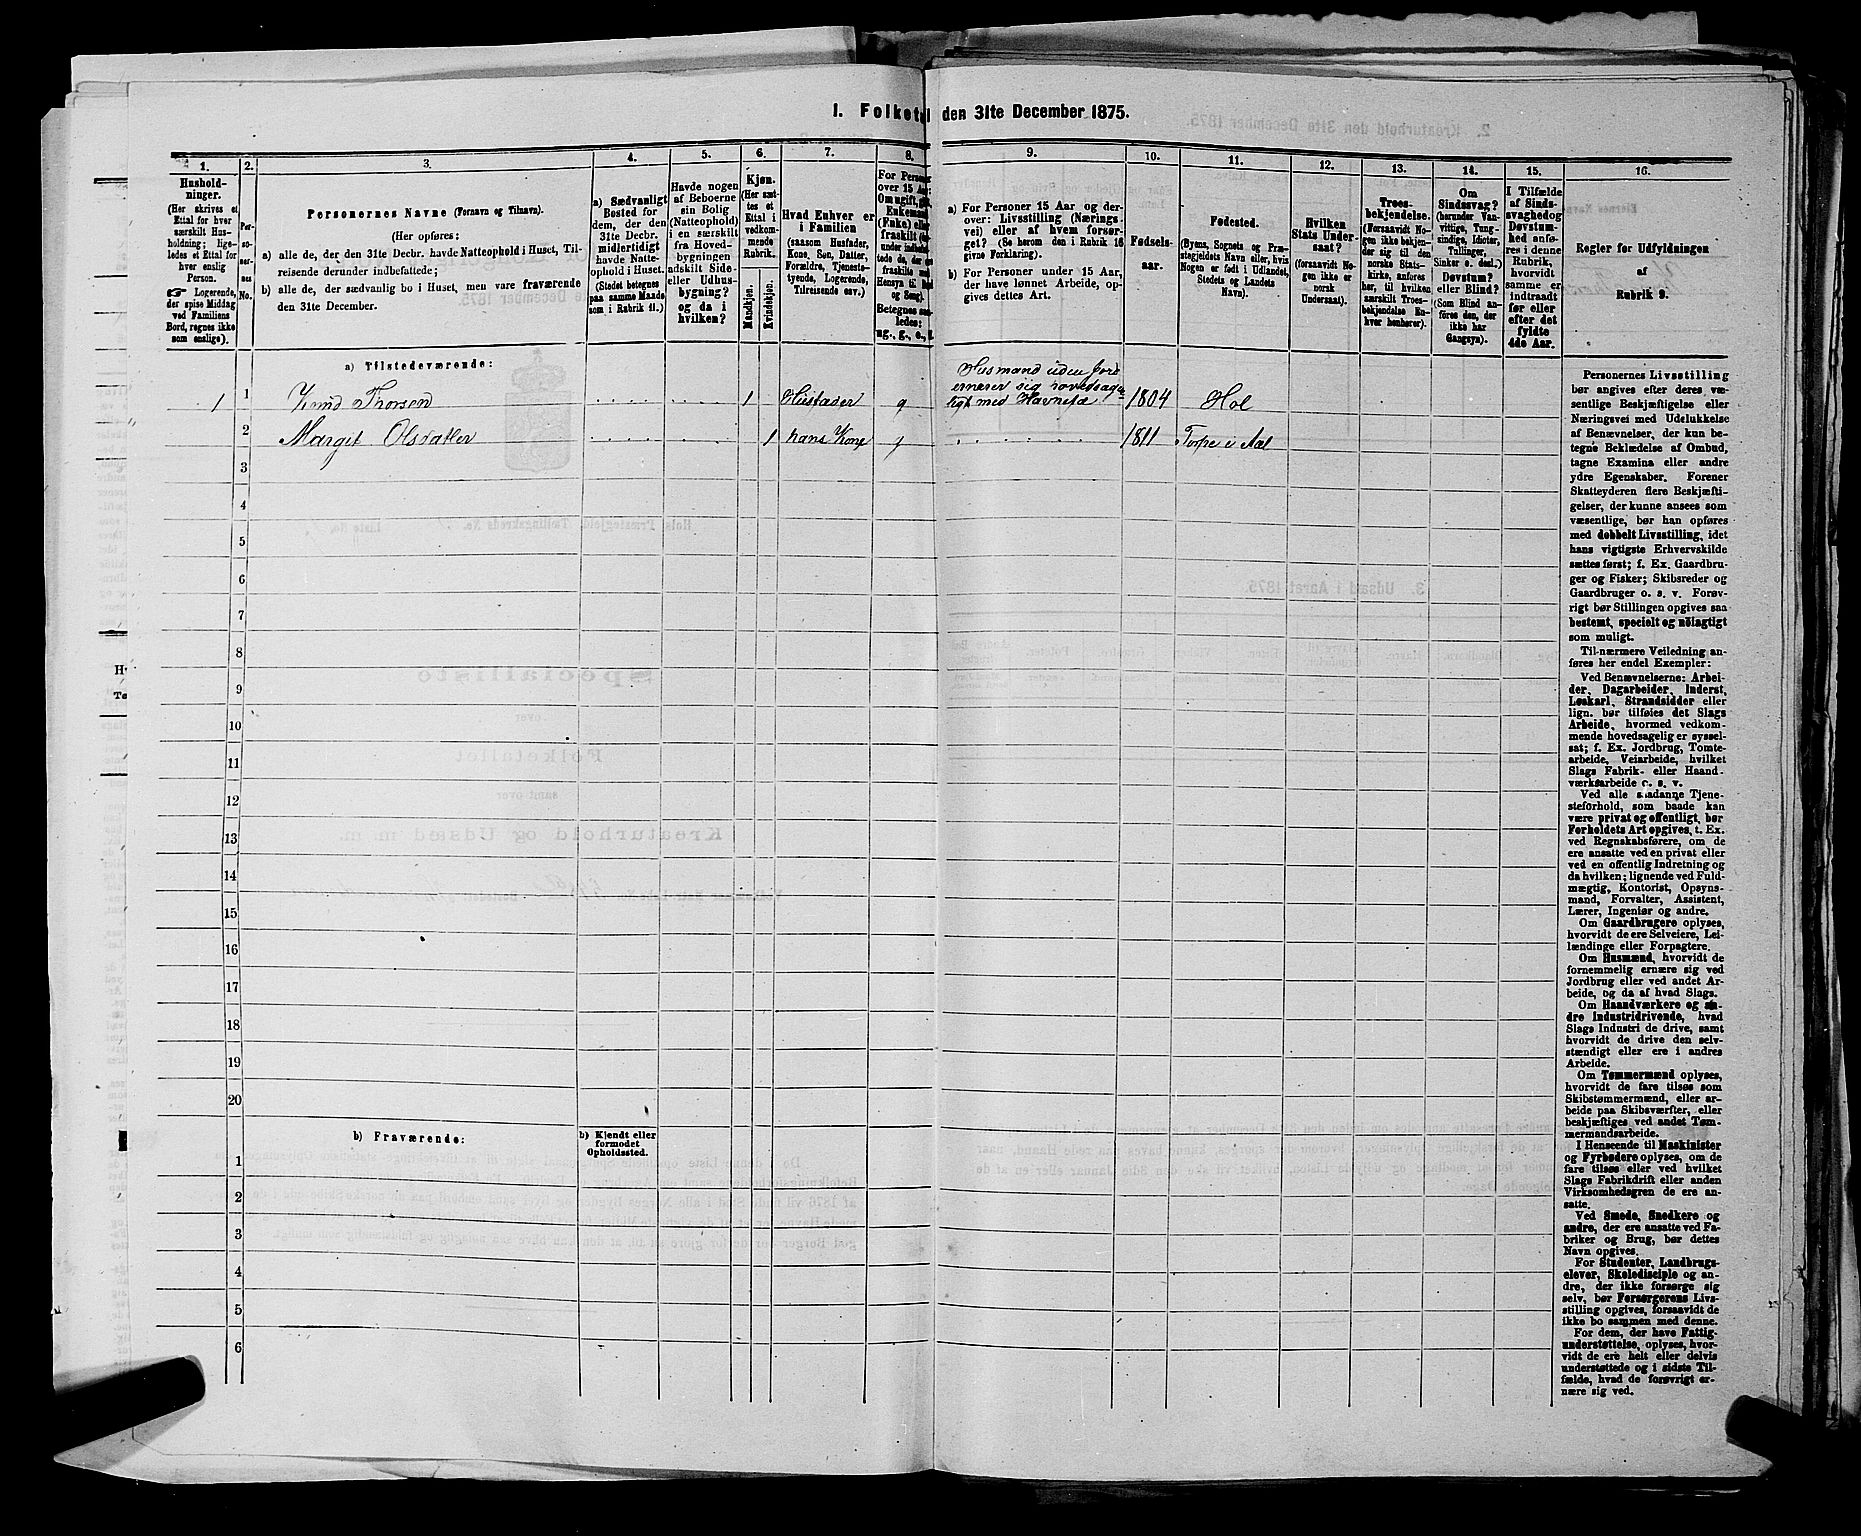 1. Folketal den 31te December 1875.
1. 2. 3. 4. 5. 6. 7. 8. 9. 10. 11. 12. 13. 14. 15. 16.
Hushold-
ninger.
(Her skrives et
Ettal for hver
særskilt Hus-
holdning; lige-
ledes et Ettal for
hver enslig
Person.
☞ Logerende,
der spise Middag
ved Familiens
Bord, regnes ikke
som enslige).
Per-
so-
ner-
nes
No.
Personernes Navne (Fornavn og Tilnavn).
(Her opføres:
a) alle de, der den 31te Decbr. havde Natteophold i Huset, Til-
reisende derunder indbefattede;
b) alle de, der sædvanlig bo i Huset, men vare fraværende
den 31te December.
a) Sædvanligt
Bosted for
dem, der den
31te Decbr.
midlertidigt
havde Natte-
ophold i Huset.
(Stedet betegnes
paa samme Maade
som i Rubrik 11.)
Havde nogen
af Beboerne
sin Bolig
(Natteophold)
i en særskilt
fra Hoved-
bygningen
adskilt Side-
eller Udhus-
bygning?
og da i
hvilken?
Kjøn.
(Her sæt-
tes et
Ettal i
vedkom-
mende
Rubrik.
Mandkjøn.
Kvindekjøn.
Hvad Enhver er
i Familien
(saasom Husfader,
Kone, Søn, Datter,
Forældre, Tjeneste-
tyende, Logerende,
Tilreisende osv.)
For Personer
over 15 Aar:
Om ugift, gift,
Enkemand
(Enke) eller
fraskilt
Betegnes saa-
ledes:
ug., g., e., f.
a) For Personer 15 Aar og der-
over: Livsstilling (Nærings-
vei) eller af hvem forsør-
get? (Se herom den i Rubrik 16
givne Forklaring).
b) For Personer under 15 Aar,
der have lønnet Arbeide, op-
gives dettes Art.
Fødsels-
aar.
Fødested.
(Byens, Sognets og Præ-
stegjeldets Navn eller, hvis
Nogen er født i Udlandet,
Stedets og Landets
Navn).
Hvilken
Stats Under-
saat?
(forsaavidt No-
gen ikke er
norsk
Undersaat).
Troes-
bekjendelse.
(Forsaavidt No-
gen ikke bekjen-
der sig til den
norske Stats-
kirke, anføres
her, til hvilken
særskilt Troes-
bekjendelse En-
hver henhører).
Om
Sindssvag?
(herunder Van-
vittige, Tung-
sindige, Idioter,
Tullinger,
Sinker o. desl.)
Døvstum?
eller Blind?
(Som Blind an-
føres den, der
ikke har
Gangsyn).
I Tilfælde
af Sinds-
svaghed og
Døvstum-
hed anfø-
res i denne
Rubrik,
hvorvidt
samme er
indtraadt
før eller
efter det
fyldte
4de Aar.
Regler for Udfyldningen
af
Rubrik 9.
a) Tilstedeværende:
1 1 Knud Thorsen 1 Husfader g Husmand uden Jord ernærer sig hovedsage ligt med Havnefæ 1804 Hol
2 Margit Olsdatter 1 hans Kone g 1811 Torpe i Aal
3
4
5
6
7
8
9
10
11
12
13
14
15
16
17
18
19
20
b) Fraværende:
b) Kjendt eller
formodet
Opholdssted.
1
2
3
4
5
6
Personernes Livsstilling
bør angives efter deres væ-
sentlige Beskjæftigelse eller
Næringsvei med Udelukkelse
af Benævnelser, der kun be-
tegne Beklædelse af Ombud,
tagne Examina eller andre
ydre Egenskaber. Forener
Skatteyderen flere Beskjæfti-
gelser, der kunne ansees som
væsentlige, bør han opføres
med dobbelt Livsstilling, idet
hans vigtigste Erhvervskilde
sættes først; f. Ex. Gaardbru-
ger og Fisker; Skibsreder og
Gaardbruger o. s. v. Forøv-
rigt bør Stillingen opgives saa
bestemt, specielt og nøiagtigt
som muligt.
Til nærmere Veiledning an-
føres her endel Exempler:
Ved Benævnelserne: Arbei-
der, Dagarbeider, Inderst,
Løskarl, Strandsidder eller
lign. bør tilføies det Slags
Arbeide, hvormed vedkom-
mende hovedsagelig er syssel-
sat; f. Ex. Jordbrug, Tomte-
arbeide, Veiarbeide, hvilket
Slags Fabrik- eller Haand-
værksarbeide o. s. v.
Ved alle saadanne Tjene-
steforhold, som baade kan
være privat og offentligt, bør
Forholdets Art opgives, t. Ex.
ved Regnskabsførere, om de
ere ansatte ved en privat eller
ved en offentlig Indretning og
da hvilken; lignende ved Fuld-
mægtig, Kontorist, Opsyns-
mand, Forvalter, Assistent,
Lærer, Ingeniør og andre.
Om Gaardbrugere oplyses,
hvorvidt de ere Selveiere, Lei-
lændinge eller Forpagtere.
Om Husmænd, hvorvidt de
fornemmelig ernære sig ved
Jordbrug eller ved andet Ar-
beide, og da af hvad Slags.
Om Haandværkere og an-
dre Industridrivende, hvad
Slags Industri de drive, samt
hvorvidt de drive den selv-
stændigt eller ere i andres
Arbeide.
Om Tømmermænd oplyses,
hvorvidt de fare tilsøs som
Skibstømmermænd, eller ar-
beide paa Skibsværfter, eller
beskjæftiges ved andet Tøm-
mermandsarbeide.
I Henseende til Maskinister
og Fyrbødere oplyses, om de
fare tilsøs eller ved hvilket
Slags Fabrikdrift eller anden
Virksomhedsgren de ere an-
satte.
Ved Smede, Snedkere og
andre, der ere ansatte ved Fa-
briker og Brug, bør dettes
Navn opgives.
For Studenter, Landbrugs-
elever, Skoledisciple og an-
dre, der ikke forsørge sig
selv, bør Forsørgerens Livs-
stilling opgives, forsaavidt de
ikke bo sammen med denne.
For dem, der have Fattig-
understøttelse, oplyses, hvor-
vidt de ere helt eller delvis
understøttede og i sidste Til-
fælde, hvad de forøvrigt er-
nære sig ved.